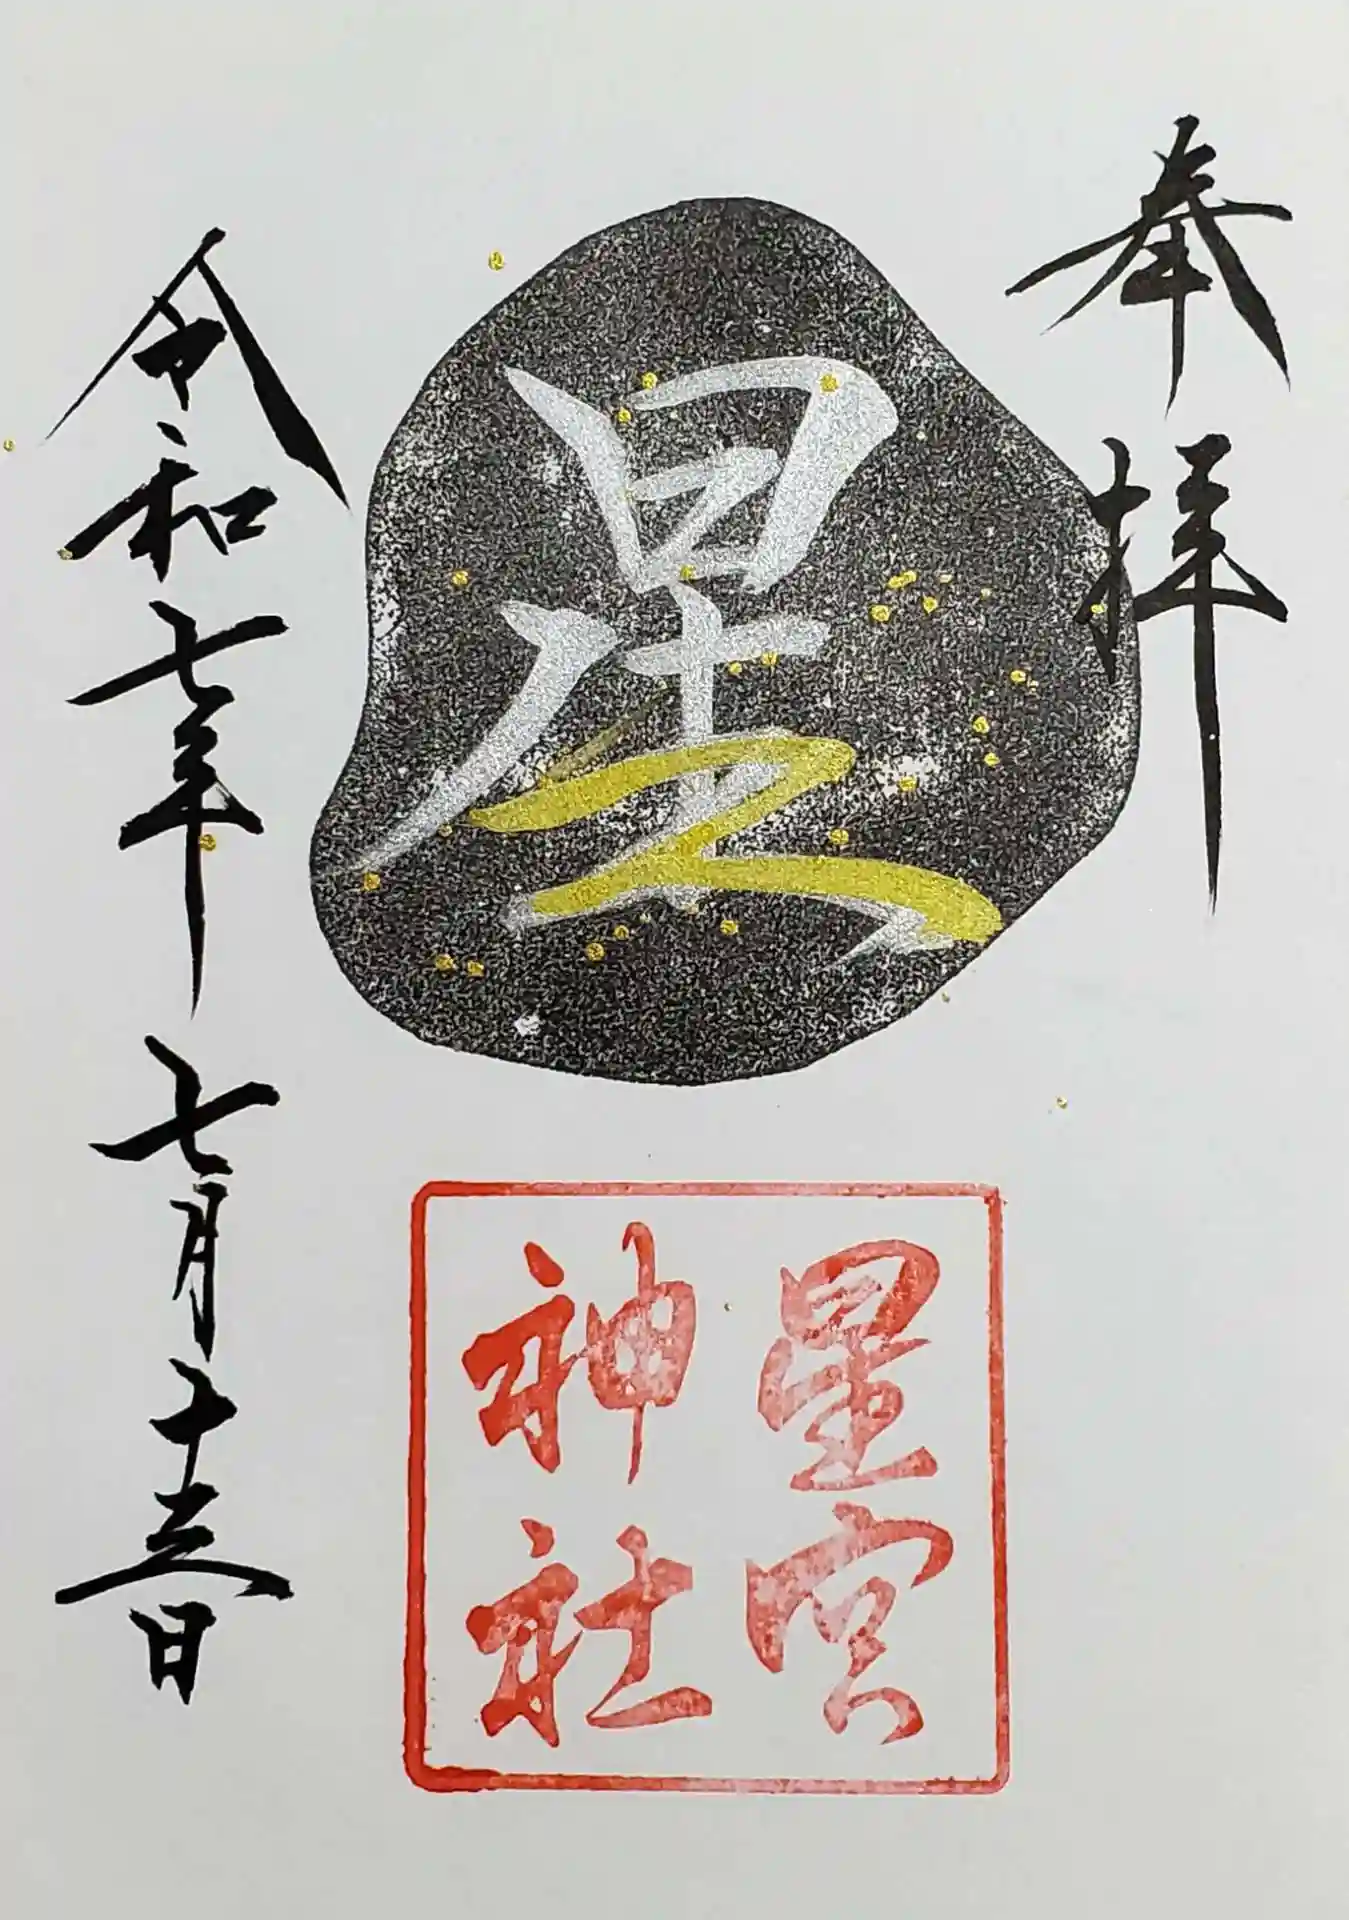 奉拝
星
星宮
神社
令和七年七月十三日